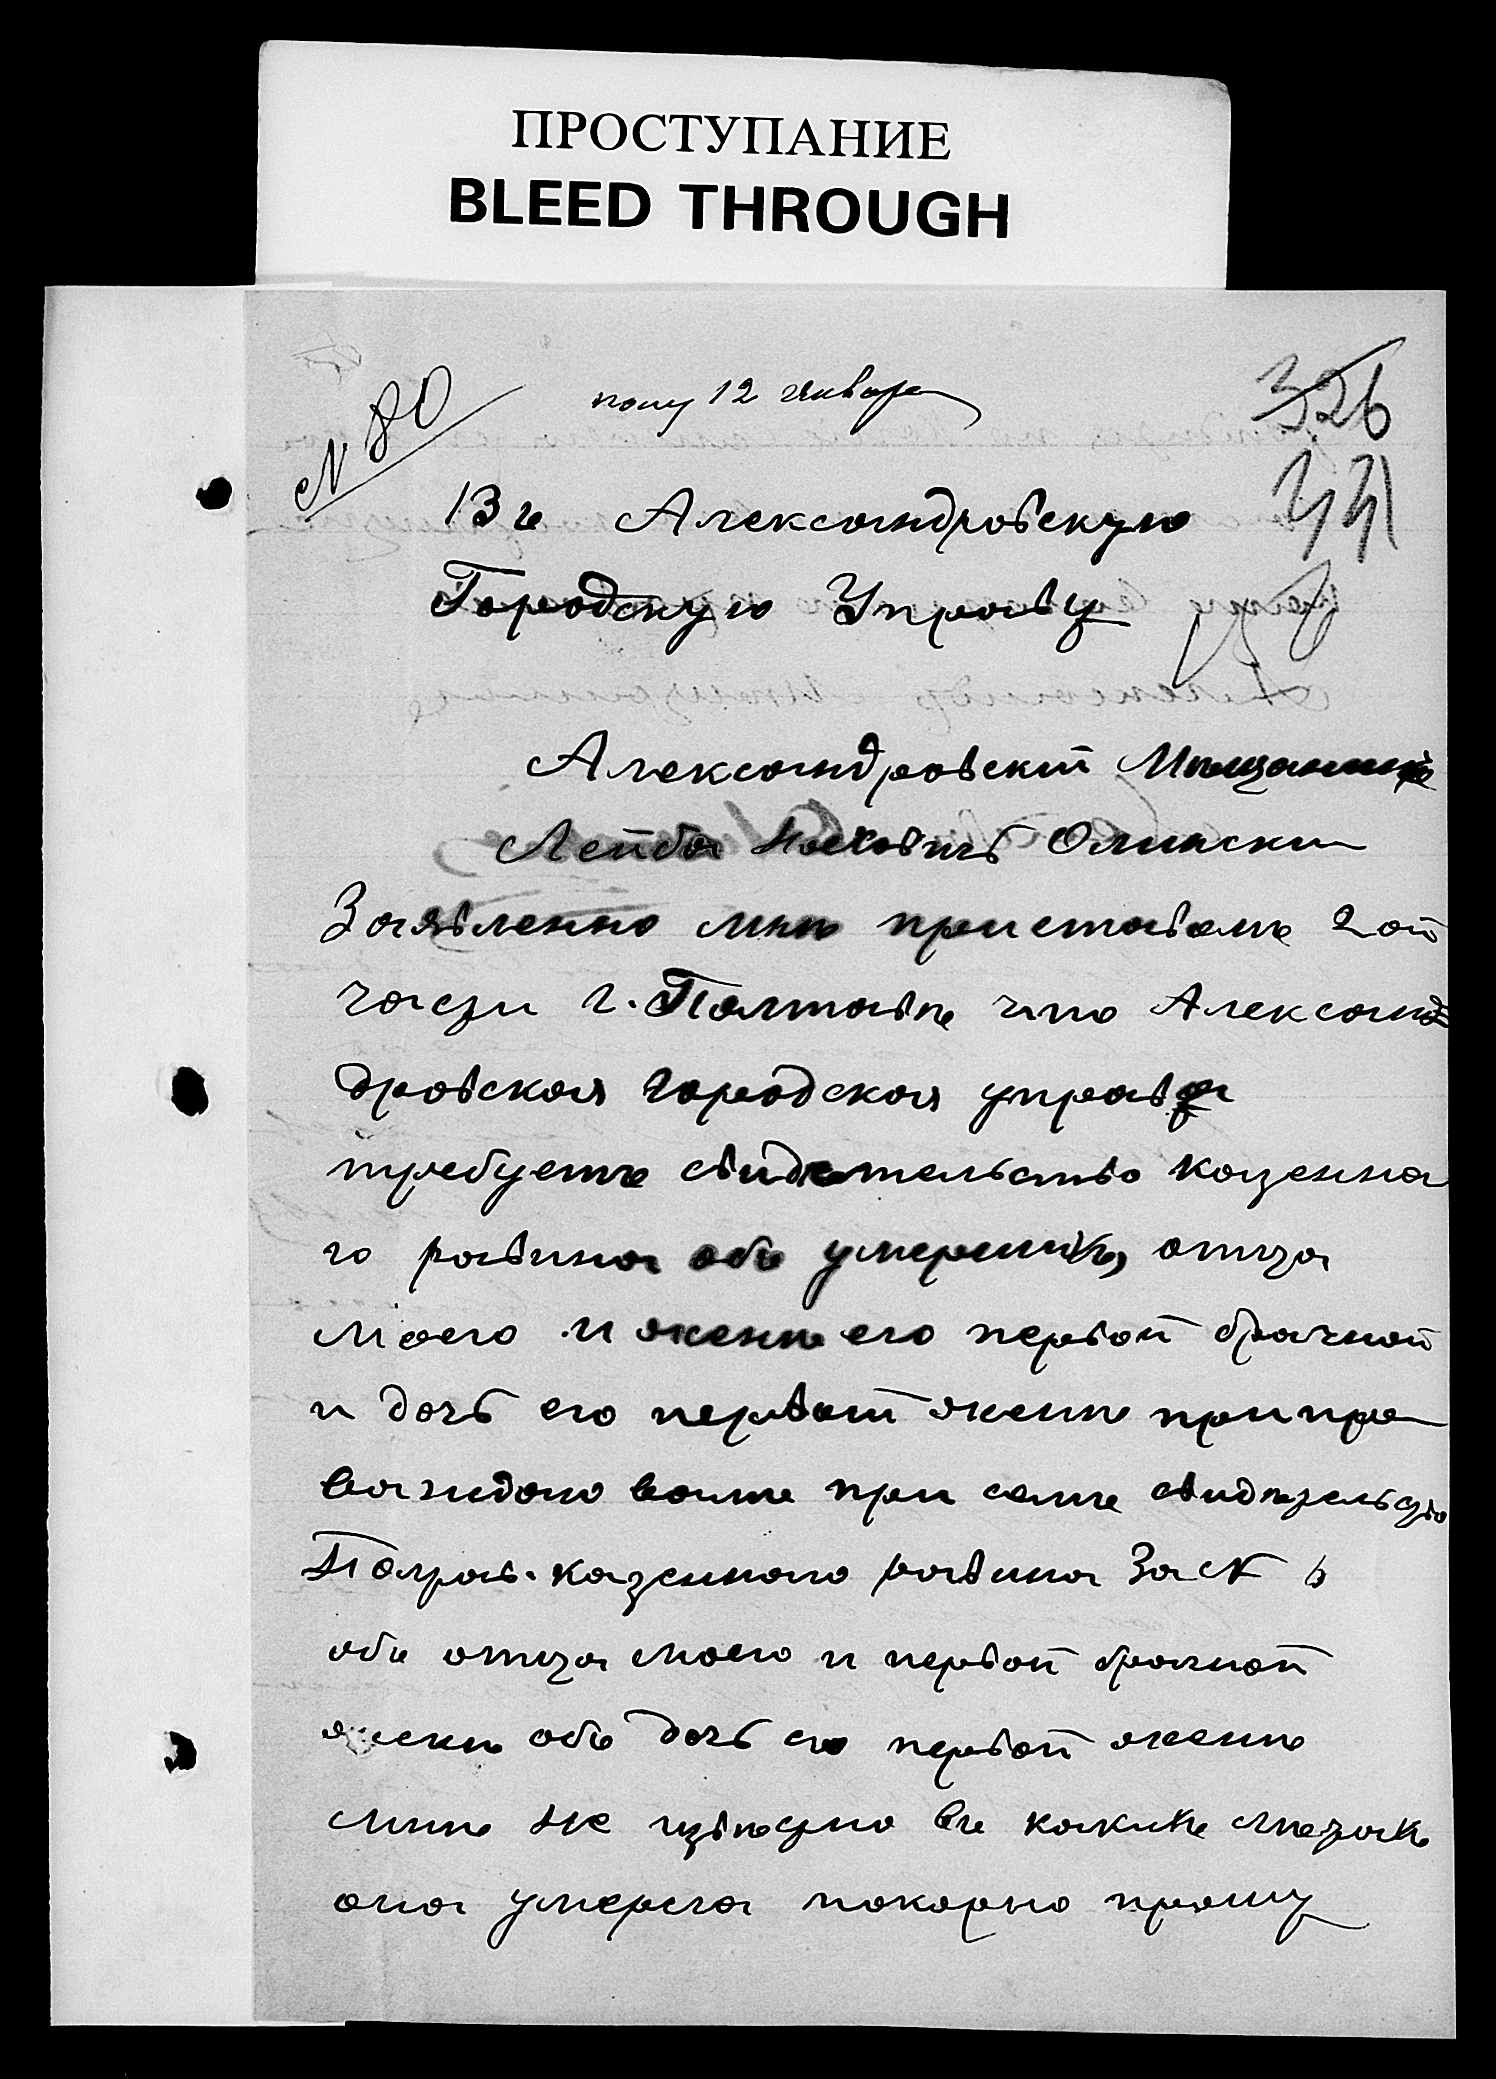 ПРОСТУПАНИЕ
BLEED THROUGH
№ 80
полу 12 января
326
331
Въ Александровскую
Городскую Управу
Александровскій Мѣщанинъ
Лейба Олински
Заявленно мнѣ приставомъ 2ой
части г. Полтавѣ что Алексан
дровская городская управа
требуетъ свидетельство казенна
го равина объ умершихъ отца
моего и женѣ его первой брачной
и дочь его первой женѣ при пре
вождаю вамъ при семъ свидѣтельство
Полтав. казенного равина За № 6
объ отца моего и первой брачной
женѣ объ дочь его первой женѣ
мнѣ не извѣстно въ какихъ мѣстахъ
она умерла покорно прошу